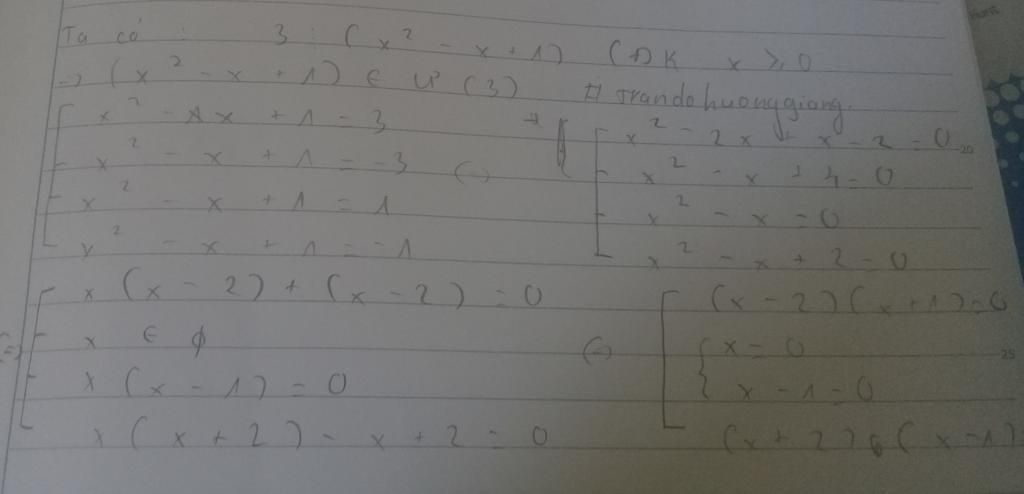 Ta có : 3 : (x² - x + 1) (ĐK x ≥ 0
→ (x² - x + 1) ∈ Ư (3) # trandohuonggiang.
x² - 1x + 1 = 3
x² - x + 1 = -3 (-)
x² - x + 1 = 1
x² - x + 1 = -1
x² - 2x + x - 2 = 0
x² - x + 4 = 0
x² - x = 0
x² - x + 2 = 0
(=) x (x - 2) + (x - 2) = 0
x ∈ ϕ
x (x - 1) = 0
x (x + 2) - x + 2 = 0
(=) (x - 2)(x + 1) = 0
x = 0
x - 1 = 0
(x + 2) (x - 1)
20
25